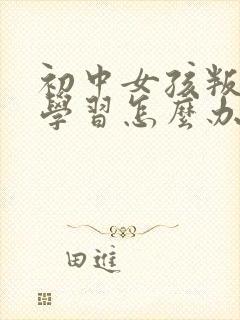 初中女孩叛
學習怎麼办
田進